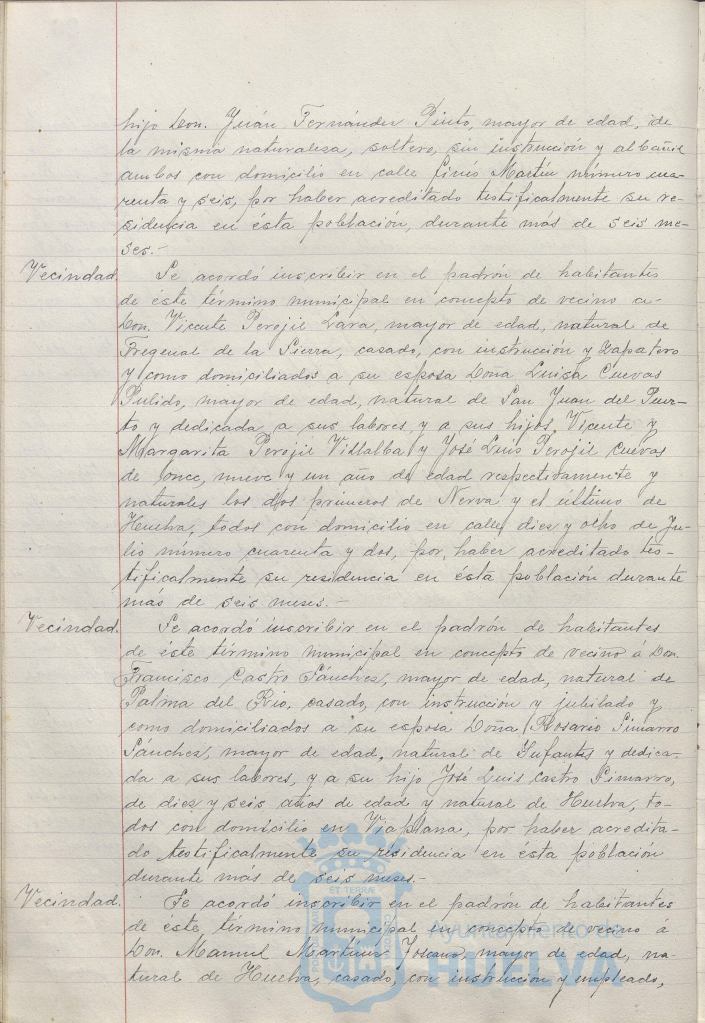 hijo Don. Juán Fernández Pinto, mayor de edad, de
la misma naturaleza, soltero, sin instrución y albañil
ambos con domicilio en calle Ginés Martín número cua-
renta y seis, por haber acreditado testificalmente su re-
sidencia en ésta población, durante más de seis me-
ses.-
Vecindad. Se acordó inscribir en el padrón de habitantes
de éste término municipal en concepto de vecino a-
Don. Vicente Perojil Lara, mayor de edad, natural de
Fregenal de la Sierra, casado, con instrucción y zapatero
y como domiciliados a su esposa Doña Luisa Cuevas
Pulido, mayor de edad, natural de San Juan del Puer-
to y dedicada a sus labores y a sus hijos, Vicente y
Margarita Perojil Villalba y José Luis Perojil Cuevas
de once, nueve y un año de edad respectivamente y
naturales los dos primeros de Nerva y el último de
Huelva, todos con domicilio en calle diez y ocho de Ju-
lio número cuarenta y dos, por haber acreditado tes-
tificalmente su residencia en ésta población durante
más de seis meses.-
Vecindad. Se acordó inscribir en el padrón de habitantes
de éste término municipal en concepto de vecino á Don.
Francisco Castro Sánchez, mayor de edad, natural de
Palma del Rio, casado, con instrucción y jubilado y
como domiciliados a su esposa Doña Rosario Pimarro
Sánchez, mayor de edad, natural de Infantes y dedica-
da a sus labores, y a su hijo José Luis Castro Pimarro,
de diez y seis años de edad y natural de Huelva, to-
dos con domicilio en Viaplana, por haber acredita-
do testificalmente su residencia en ésta población
durante mas de seis meses.-
Vecindad. Se acordó inscribir en el padrón de habitantes
de éste término municipal en concepto de vecino á
Don. Manuel Martínez Toscano, mayor de edad, na-
tural de Huelva, casado, con instrucción y empleado,
Ayuntamiento de
HUELVA